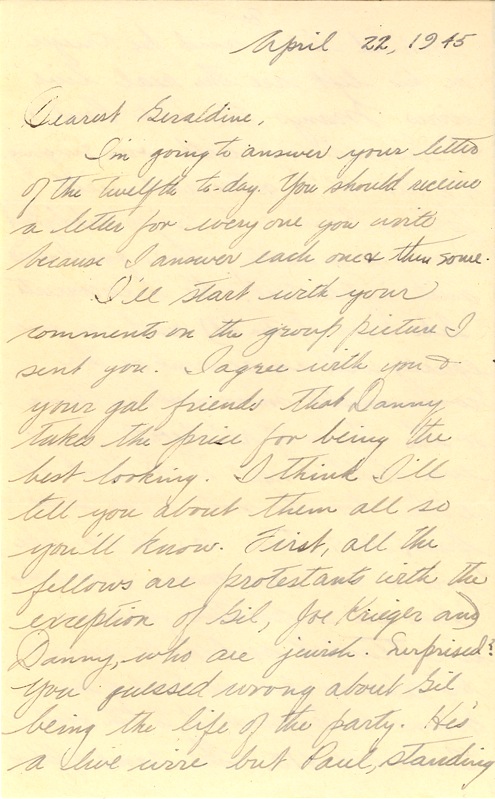 April 22, 1945
Dearest Geraldine,
I'm going to answer your letter
of the twelfth to-day. You should receive
a letter for everyone you write
because I answer each one & then some.
I'll start with your
comments on the group picture I
sent you. I agree with you &
your gal friends that Danny
takes the prize for being the
best looking. I think I'll
tell you about them all so
you'll know. First, all the
fellows are protestants with the
exception of Gil, Joe Krieger and
Danny, who are jewish. Surprised?
You guessed wrong about Gil
being the life of the party. He's
a live wire but Paul, standing